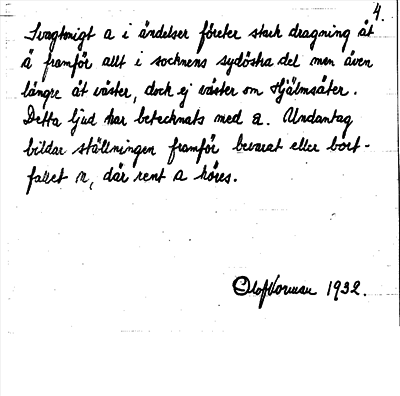 4.
Svagtonigt a i ändelser företer stark dragning åt
å framför allt i socknens sydöstra del men även
längre åt väster, dock ej väster om Hjälmsäter.
Detta ljud har betecknats med a. Undantag
bildar ställningen framför bevarat eller bort-
fallet n, där rent a höres.
Olof Norman 1932.